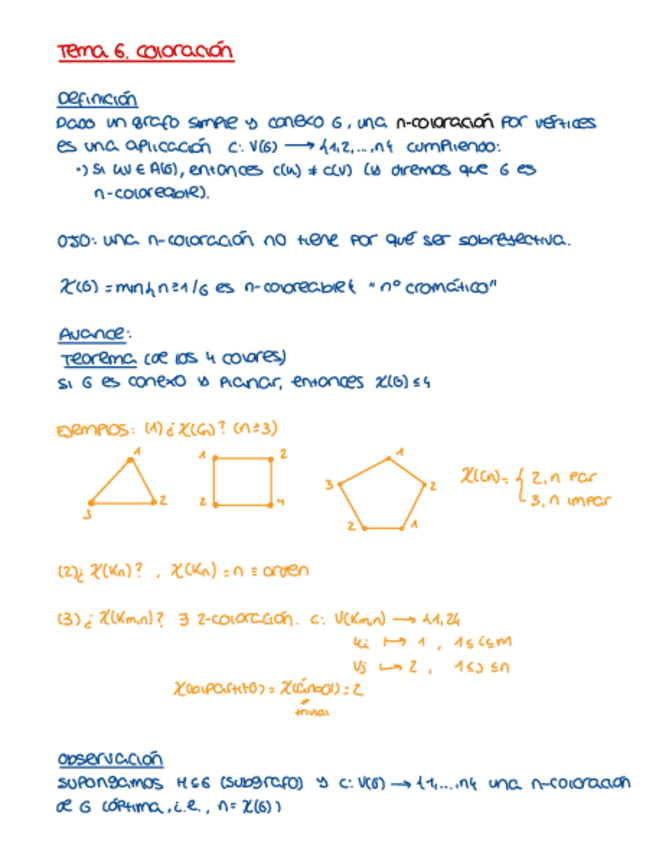 Tema 6. Coloración
Definición
Dado un grafo simple y conexo G, una n-coloración por vértices
es una aplicación c: V(G) ⟶ {1,2,...,n} cumpliendo:
·) Si uv ∈ A(G), entonces c(u) ≠ c(v) (y diremos que G es
n-coloreable).
OJO: una n-coloración no tiene por qué ser sobreyectiva.
χ(G) = min{n≥1 / G es n-coloreable} "nº cromático"
Avance:
Teorema (de los 4 colores)
Si G es conexo y planar, entonces χ(G) ≤ 4
Ejemplos: (1) ¿χ(Cn)? (n≥3)
1
3 2
1 2
2 4
1
3 2
2 1
χ(Cn) = { 2, n par
3, n impar
(2) ¿χ(Kn)? , χ(Kn) = n ≡ orden
(3) ¿χ(Km,n)? ∃ 2-coloración. c: V(Km,n) ⟶ {1,2}
ui ⟼ 1 , 1≤i≤m
vj ⟼ 2 , 1≤j≤n
χ(bipartito) = χ(árbol) = 2
≠
trivial
Observación
Supongamos H≤G (subgrafo) y c: V(G) ⟶ {1,...,n} una n-coloración
de G (óptima, i.e., n = χ(G))